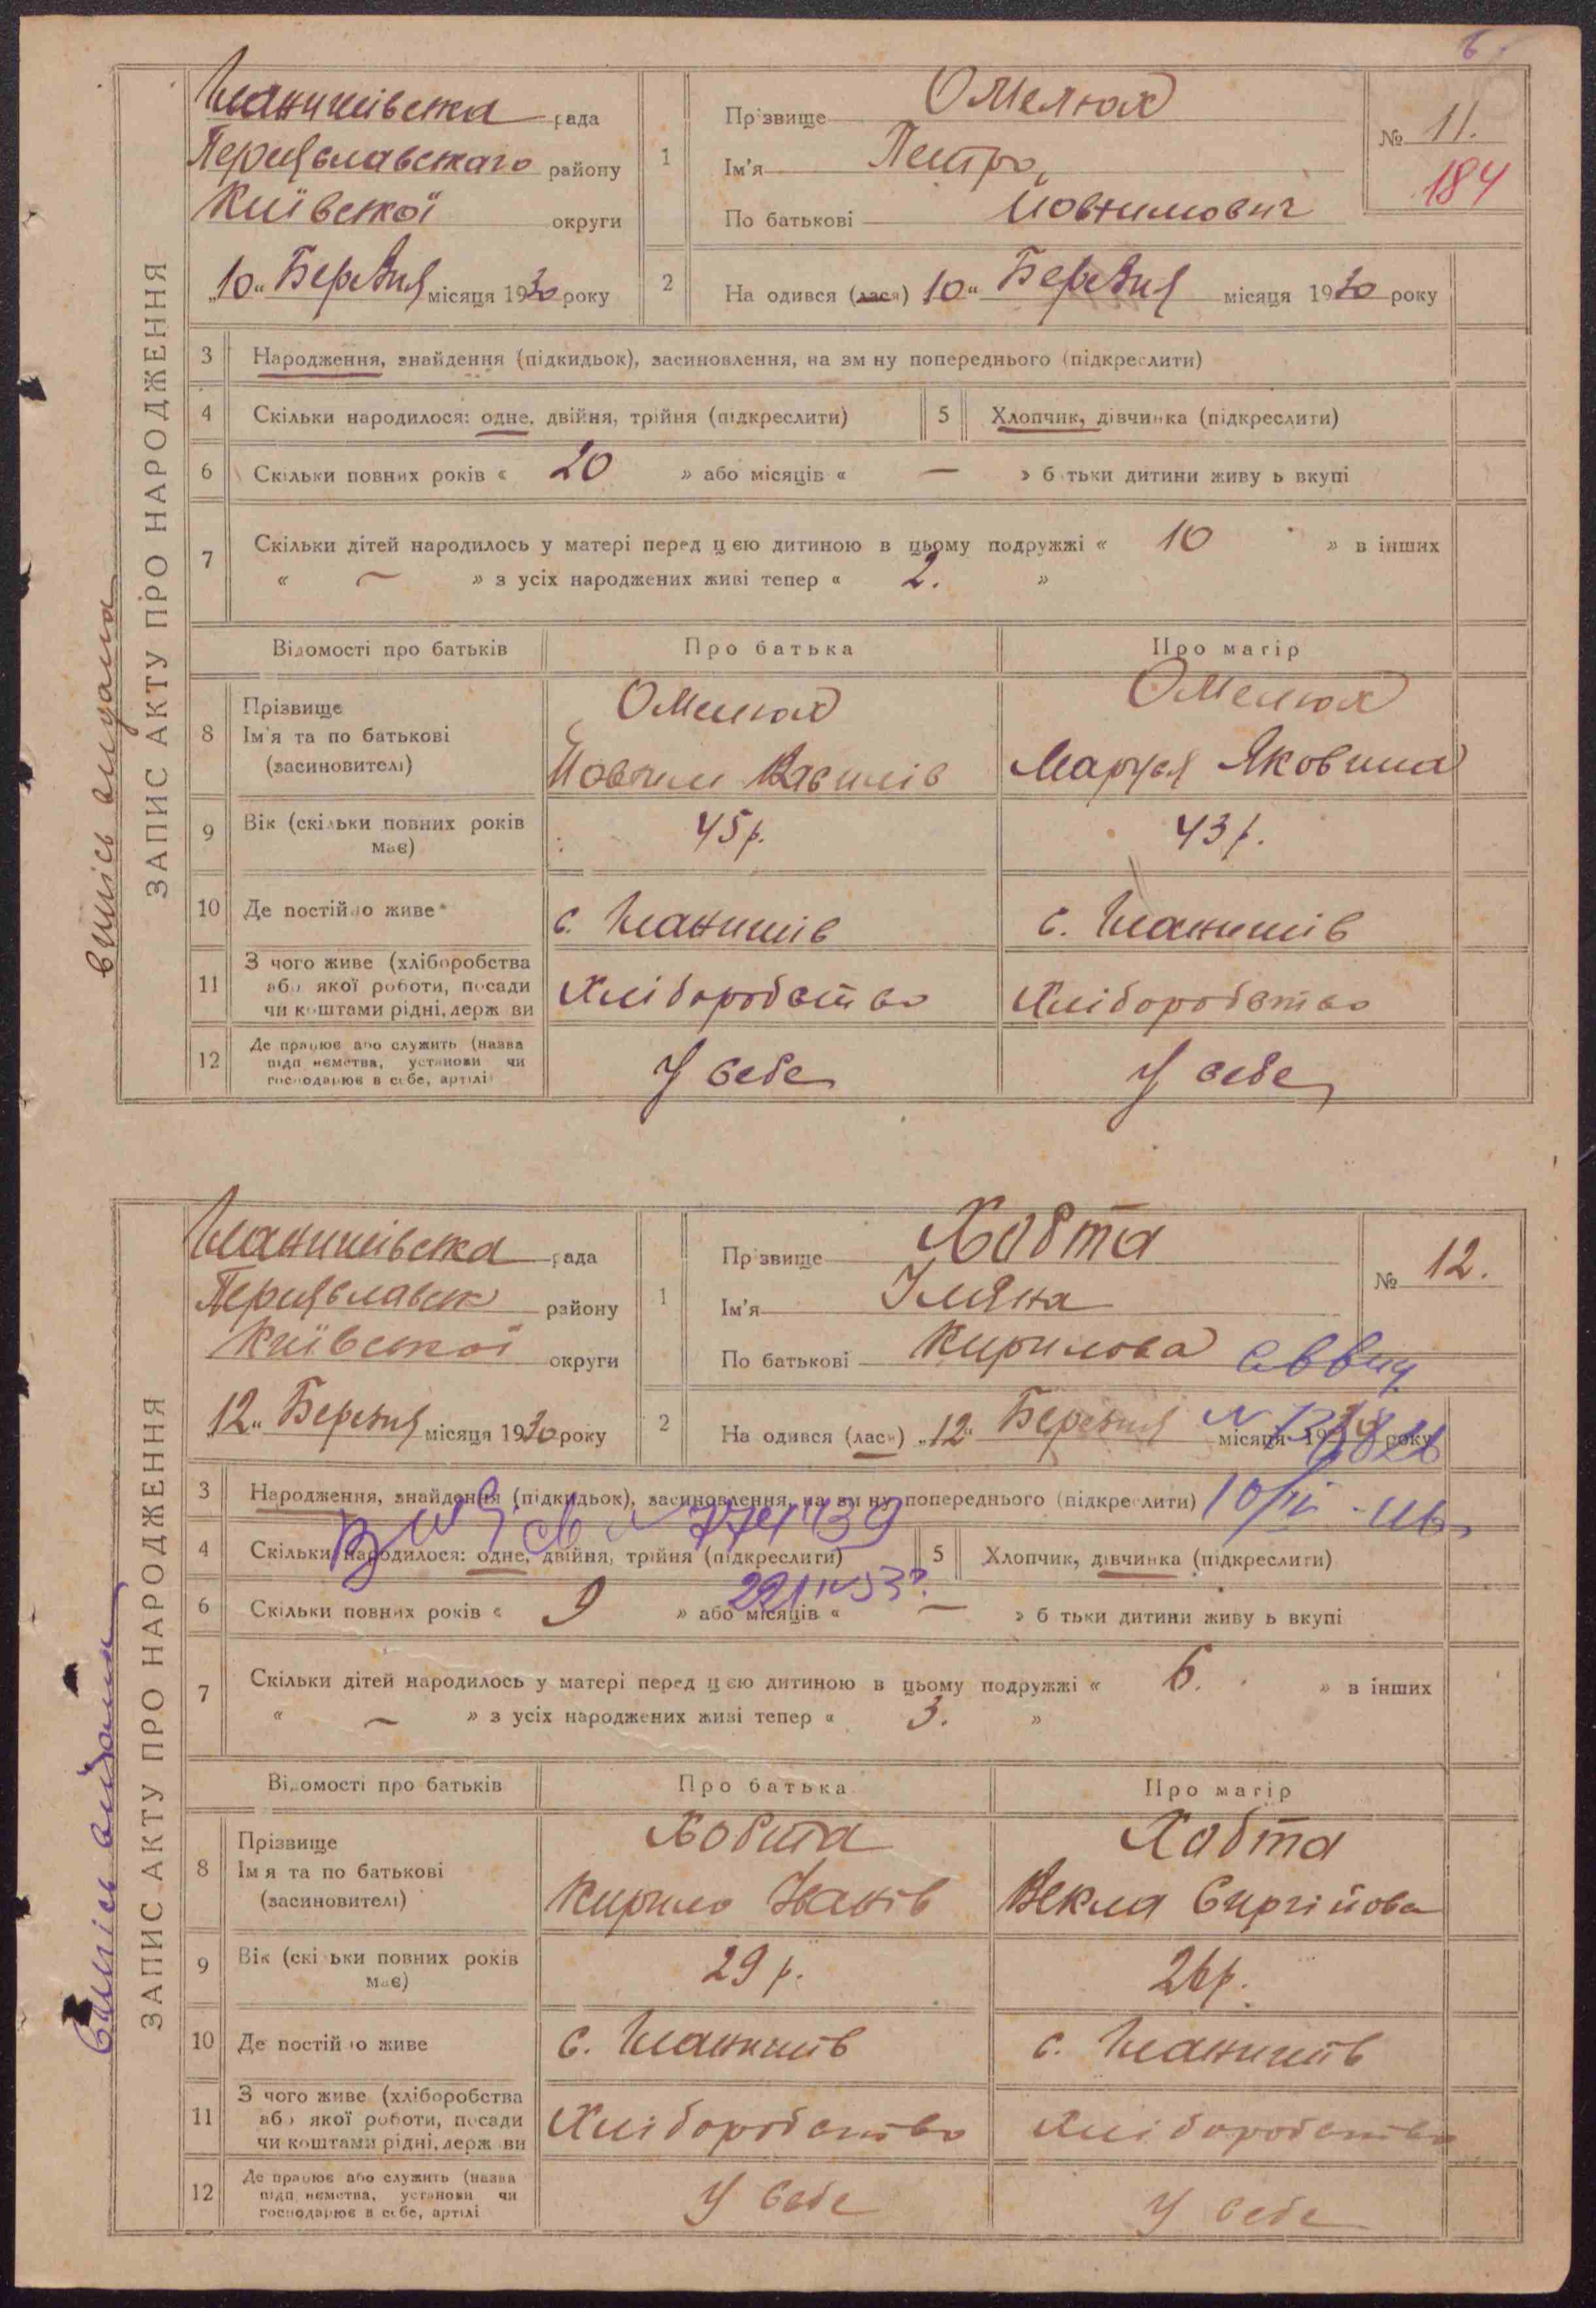 6
ЗАПИС АКТУ ПРО НАРОДЖЕННЯ
рада
району
Київської округи
"10" Березня місяця 1930 року
1
Прізвище Омелюх
Ім'я Петро
По батькові Йовтимович
№ 11.
184
2
На одився (лася) 10" Березня місяця 1930 року
3 Народження, знайдення (підкидьок), засиновлення, на зм ну попереднього (підкреслити)
4 Скільки народилося: одне, двійня, трійня (підкреслити)
5 Хлопчик, дівчинка (підкреслити)
6 Скільки повних років « 20 » або місяців « — » б тьки дитини живу ь вкупі
7 Скільки дітей народилось у матері перед цією дитиною в цьому подружжі « 10 » в інших
« — » з усіх народжених живі тепер « 2. »
Відомості про батьків
Про батька
Про матір
8 Прізвище
Ім'я та по батькові
(засиновителі)
Омелюх
Йовтим
Омелюх
Маруся Яковина
9 Вік (скільки повних років має)
45 р.
43 р.
10 Де постійно живе
с.
с.
11 З чого живе (хліборобства
або якої роботи, посади
чи коштами рідні, держ ви
Хліборобство
Хліборобство
12 Де працює або служить (назва
підп иємства, установи чи
господарює в себе, артілі
У себе
У себе
ЗАПИС АКТУ ПРО НАРОДЖЕННЯ
рада
району
Київської округи
12" Березня місяця 1930 року
1
Прізвище Хобта
Ім'я Уляна
По батькові Кирилова
№ 12.
2
На одився (лась) "12" Березня місяця 1930 року
3 Народження, знайдення (підкидьок), засиновлення, на зм ну попереднього (підкреслити)
4 Скільки народилося: одне, двійня, трійня (підкреслити)
5 Хлопчик, дівчинка (підкреслити)
6 Скільки повних років « 9 » або місяців « — » б тьки дитини живу ь вкупі
7 Скільки дітей народилось у матері перед цією дитиною в цьому подружжі « 6. » в інших
« — » з усіх народжених живі тепер « 3. »
Відомості про батьків
Про батька
Про матір
8 Прізвище
Ім я та по батькові
(засиновителі)
Хобта
Кирило Іванів
Хобта
Векла Сиргійова
9 Вік (скі ьки повних років має)
29 р.
26 р.
10 Де постійно живе
с.
с.
11 З чого живе (хліборобства
або якої роботи, посади
чи коштами рідні, держ ви
Хліборобство
Хліборобство
12 Де працює або служить (назва
підп иємства, установи чи
господарює в себе, артілі
У себе
У себе